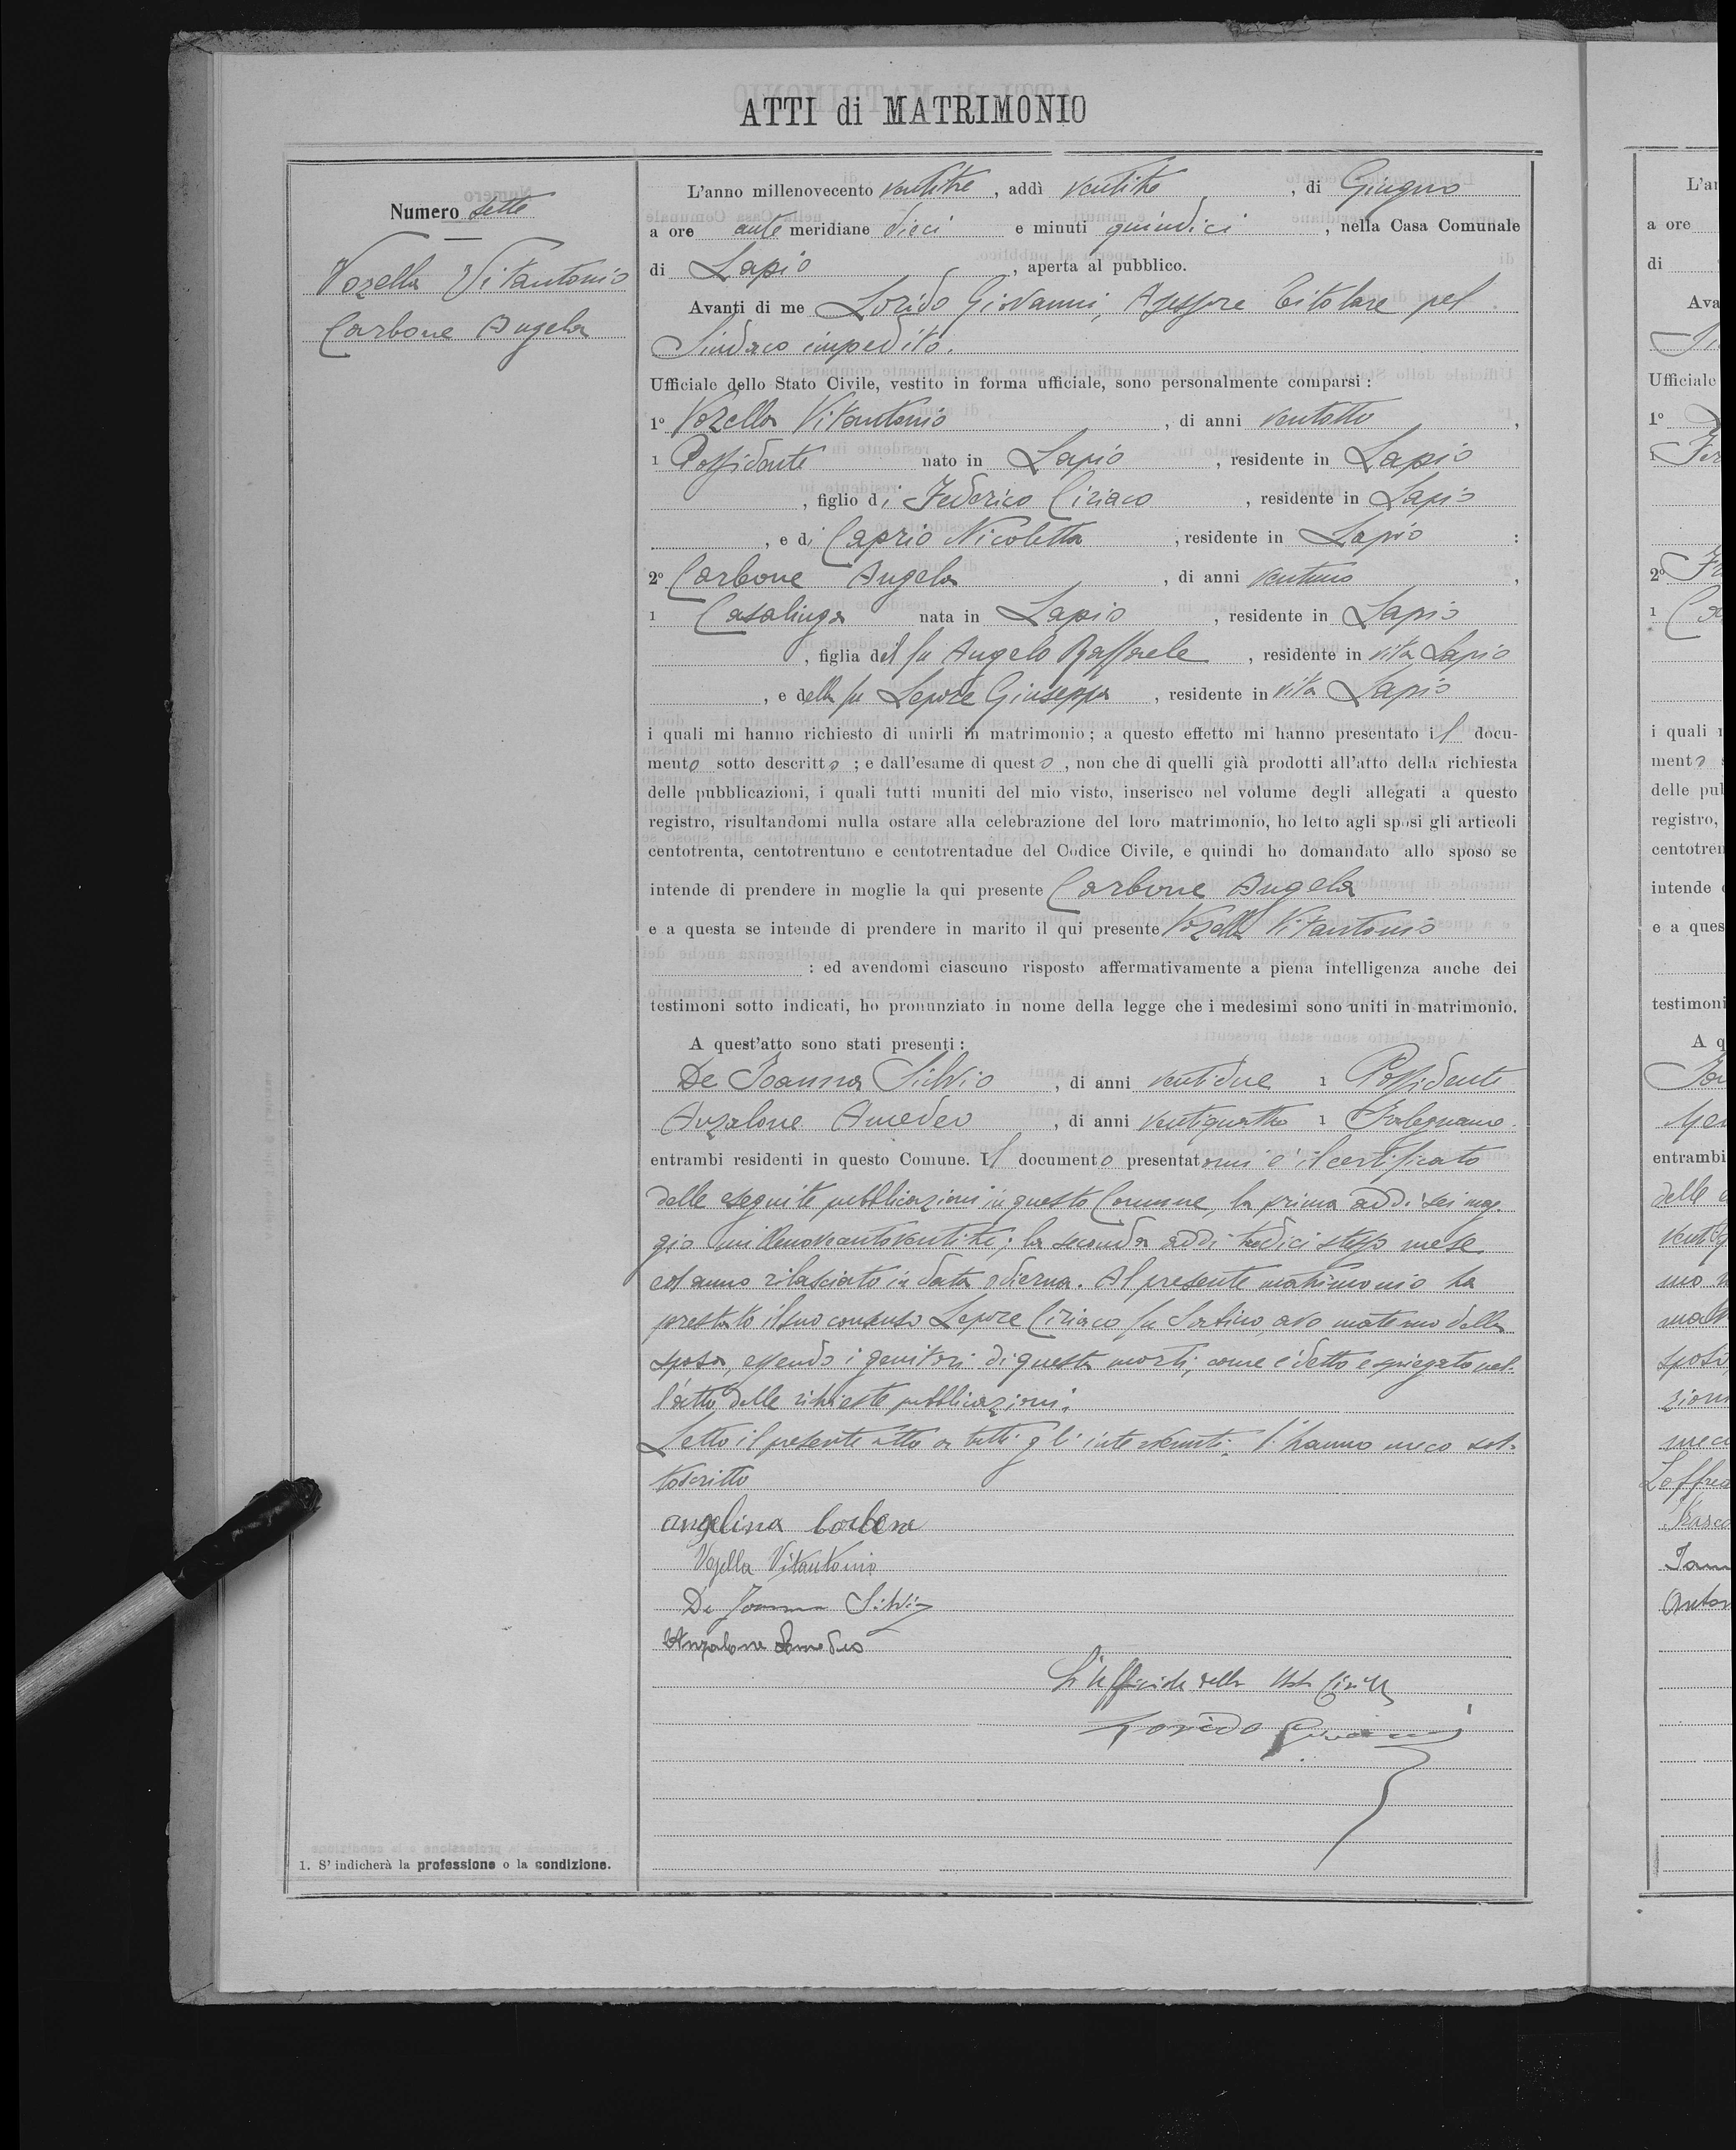 ATTI di MATRIMONIO
Numero sette
Vozella Vitantonio
Carbone Angela
L'anno millenovecento ventitre, addì ventitre, di Giugno
a ore ante meridiane dieci e minuti quindici, nella Casa Comunale
di Lapio, aperta al pubblico.
Avanti di me Lorido Giovanni, Assessore Titolare pel
Sindaco impedito.
Ufficiale dello Stato Civile, vestito in forma ufficiale, sono personalmente comparsi:
1º Vozella Vitantonio, di anni ventotto,
1 Possidente nato in Lapio, residente in Lapio
, figlio di Federico Ciriaco, residente in Lapio
, e di Caprio Nicoletta, residente in Lapio :
2º Carbone Angela, di anni ventuno,
1 Casalinga nata in Lapio, residente in Lapio
, figlia del fu Angelo Raffaele, residente in vita Lapio
, e della fu Lepore Giuseppa, residente in vita Lapio
i quali mi hanno richiesto di unirli in matrimonio; a questo effetto mi hanno presentato il docu-
mento sotto descritto; e dall'esame di questo, non che di quelli già prodotti all'atto della richiesta
delle pubblicazioni, i quali tutti muniti del mio visto, inserisco nel volume degli allegati a questo
registro, risultandomi nulla ostare alla celebrazione del loro matrimonio, ho letto agli sposi gli articoli
centotrenta, centotrentuno e centotrentadue del Codice Civile, e quindi ho domandato allo sposo se
intende di prendere in moglie la qui presente Carbone Angela
e a questa se intende di prendere in marito il qui presente Vozella Vitantonio
: ed avendomi ciascuno risposto affermativamente a piena intelligenza anche dei
testimoni sotto indicati, ho pronunziato in nome della legge che i medesimi sono uniti in matrimonio.
A quest'atto sono stati presenti:
De Joanna Silvio, di anni ventidue 1 Possidente
Anzalone Amedeo, di anni ventiquattro 1 Falegname
entrambi residenti in questo Comune. Il documento presentatomi è il certificato
delle eseguite pubblicazioni in questo Comune, la prima addì sei mag-
gio millenovecentoventitre; la seconda addì tredici stesso mese
ed anno rilasciato in data odierna. Al presente matrimonio ha
prestato il suo consenso Lepore Ciriaco fu avo materno della
sposa, essendo i genitori di questa morti, come è detto e spiegato nel-
l'atto delle richieste pubblicazioni.
Letto il presente atto a tutti gli intervenuti, l'hanno meco sot-
toscritto
Angelina Carbone
Vozella Vitantonio
De Joanna Silvio
Anzalone Amedeo
L'Ufficiale dello Stato Civile
Lorido Giovanni
1. S'indicherà la professione o la condizione.
L'an
a ore
di
Ava
Ufficiale
1º
2º
1
i quali
mento
delle pub
registro,
centotren
intende
e a ques
testimoni
A q
entrambi
delle